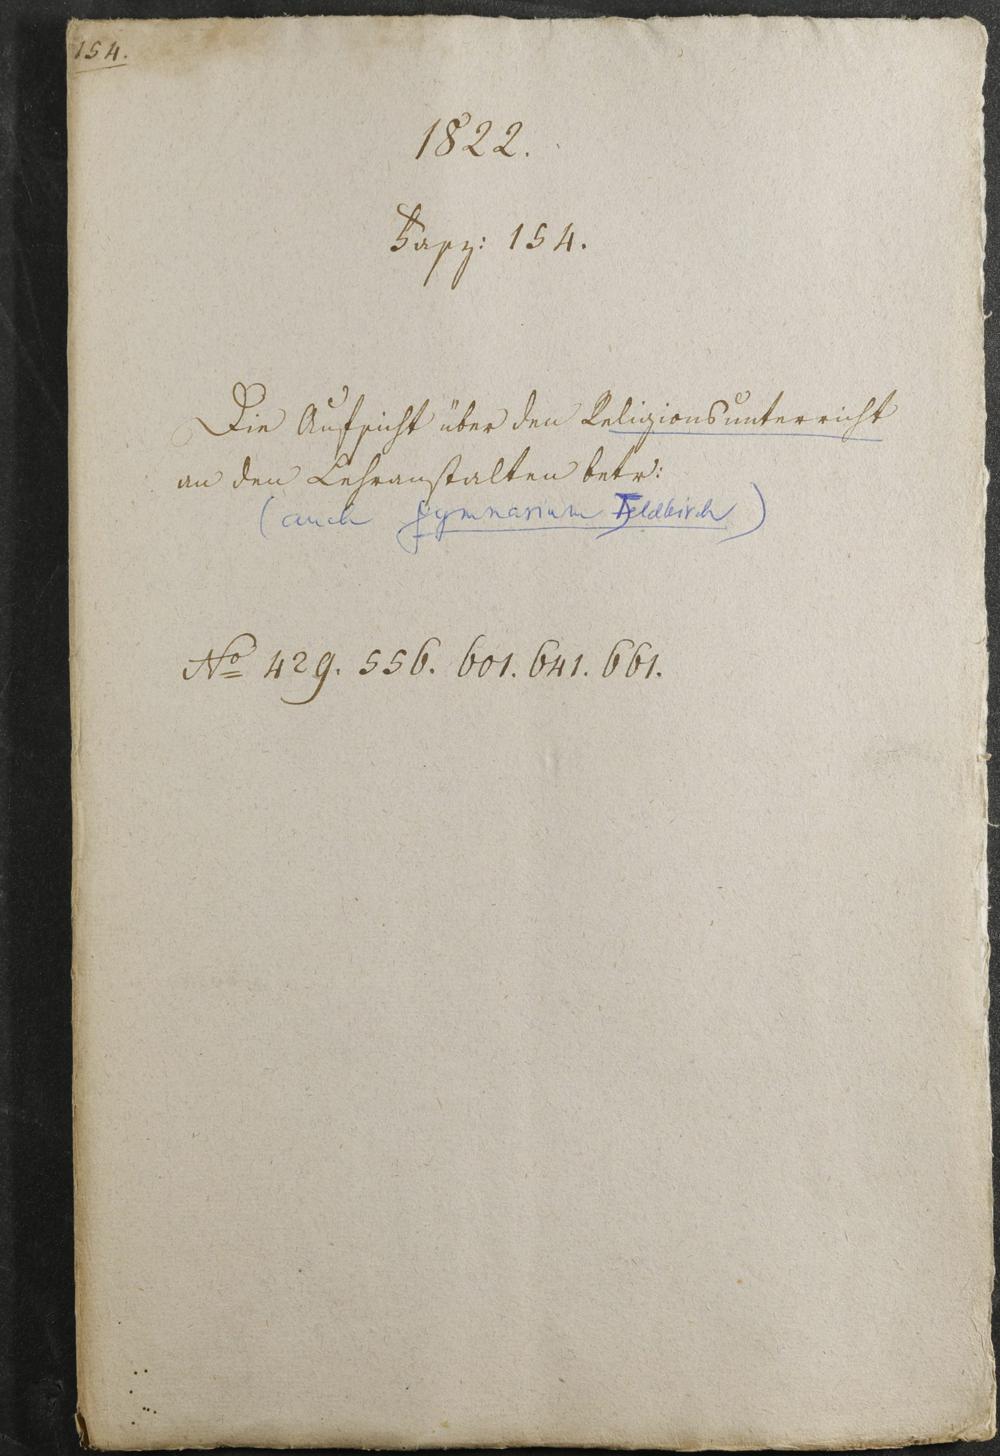 154.
1822.
Fasz: 154.
Die Aufsicht über den Religionsunterricht
an den Lehranstalten betr:
(auch Gymnasium Feldkirch)
No 429. 556. 601. 641. 661.